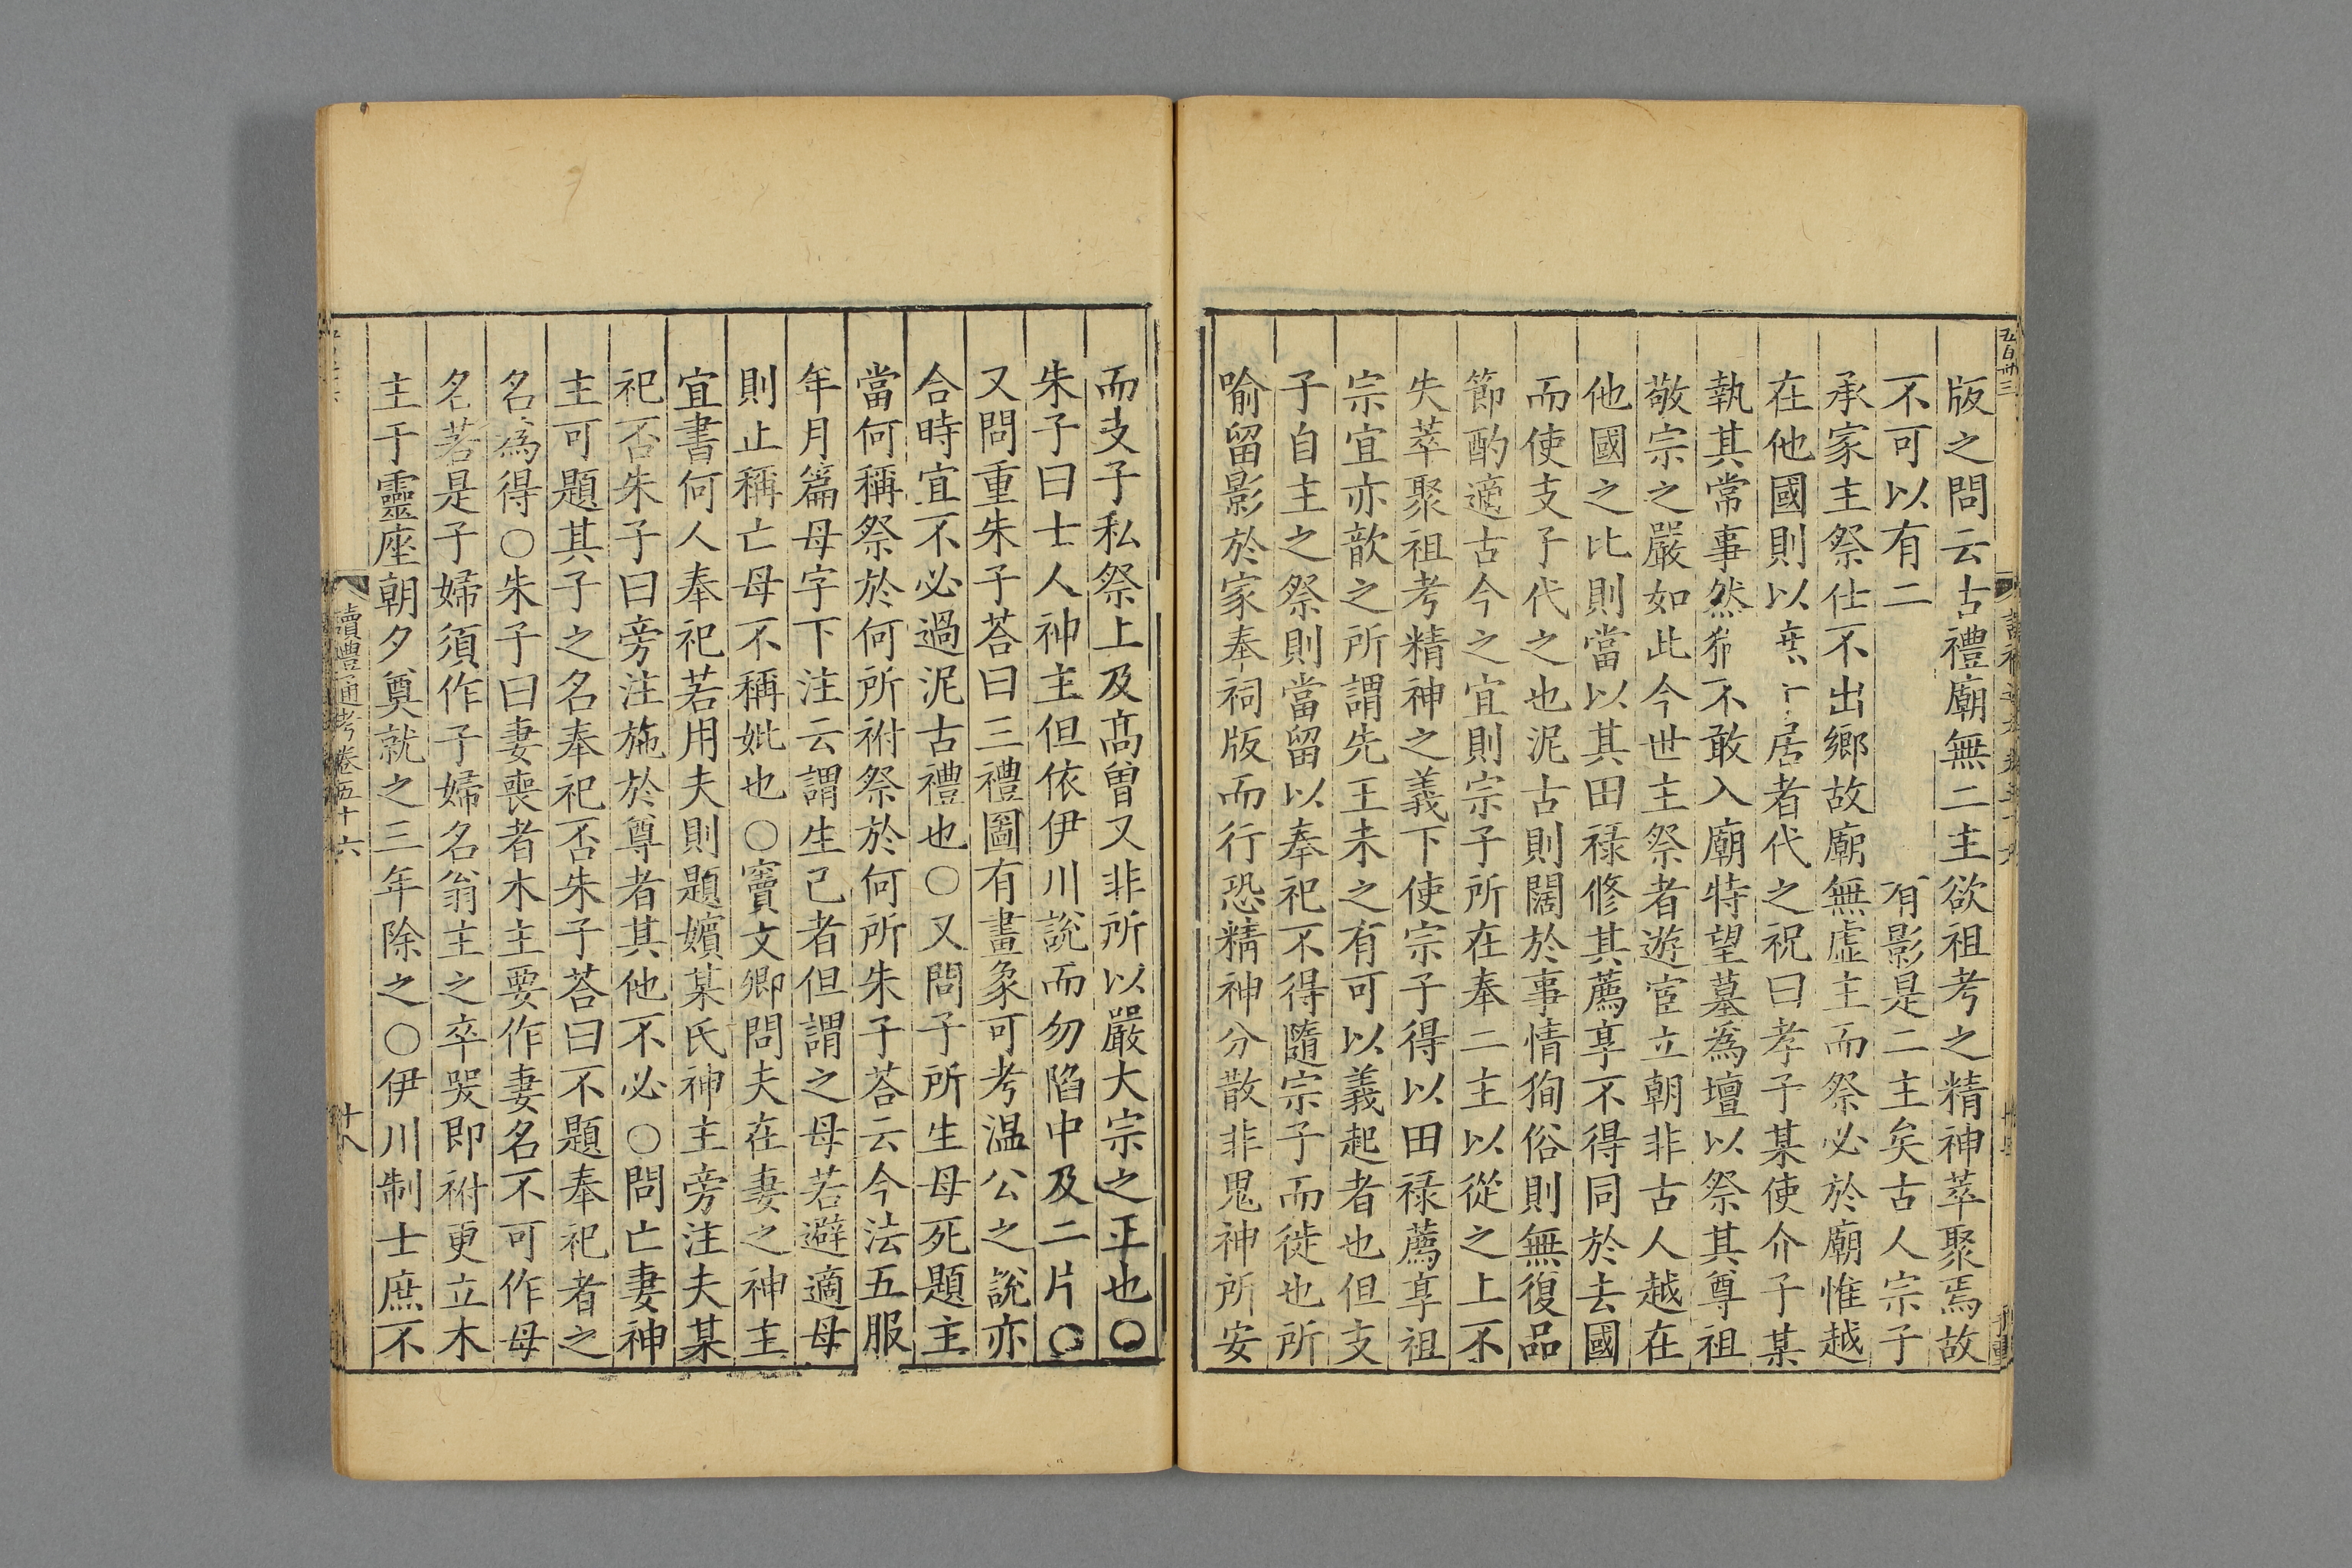 版之問云古禮廟無二主欲祖考之精神萃聚焉故
不可以有二有影是二主矣古人宗子
承家主祭仕不出鄉故廟無虛主而祭必於廟惟越
在他國則以居者代之祝曰孝子某使介子某
執其常事然猶不敢入廟特望墓爲壇以祭其尊祖
敬宗之嚴如此今世主祭者遊宦立朝非古人越在
他國之比則當以其田祿修其薦享不得同於去國
而使支子代之也泥古則闊於事情徇俗則無復品
節酌適古今之宜則宗子所在奉二主以從之上不
失萃聚祖考精神之義下使宗子得以田祿薦享祖
宗宜亦歆之所謂先王未之有可以義起者也但支
子自主之祭則當留以奉祀不得隨宗子而徙也所
喻留影於家奉祠版而行恐精神分散非鬼神所安
而支子私祭上及高曾又非所以嚴大宗之正也○
朱子曰士人神主但依伊川說而勿陷中及二片○
又問重朱子荅曰三禮圖有畫象可考温公之說亦
合時宜不必過泥古禮也○又問子所生母死題主
當何稱祭於何所祔祭於何所朱子荅云今法五服
年月篇母字下注云謂生己者但謂之母若避適母
則止稱亡母不稱妣也○竇文卿問夫在妻之神主
宜書何人奉祀若用夫則題嬪某氏神主旁注夫某
祀否朱子曰旁注施於尊者其他不必○問亡妻神
主可題其子之名奉祀否朱子荅曰不題奉祀者之
名爲得○朱子曰妻喪者木主要作妻名不可作母
名若是子婦須作子婦名翁主之卒哭即祔更立木
主于靈座朝夕奠就之三年除之○伊川制士庶不
讀禮通考卷五十六
十八